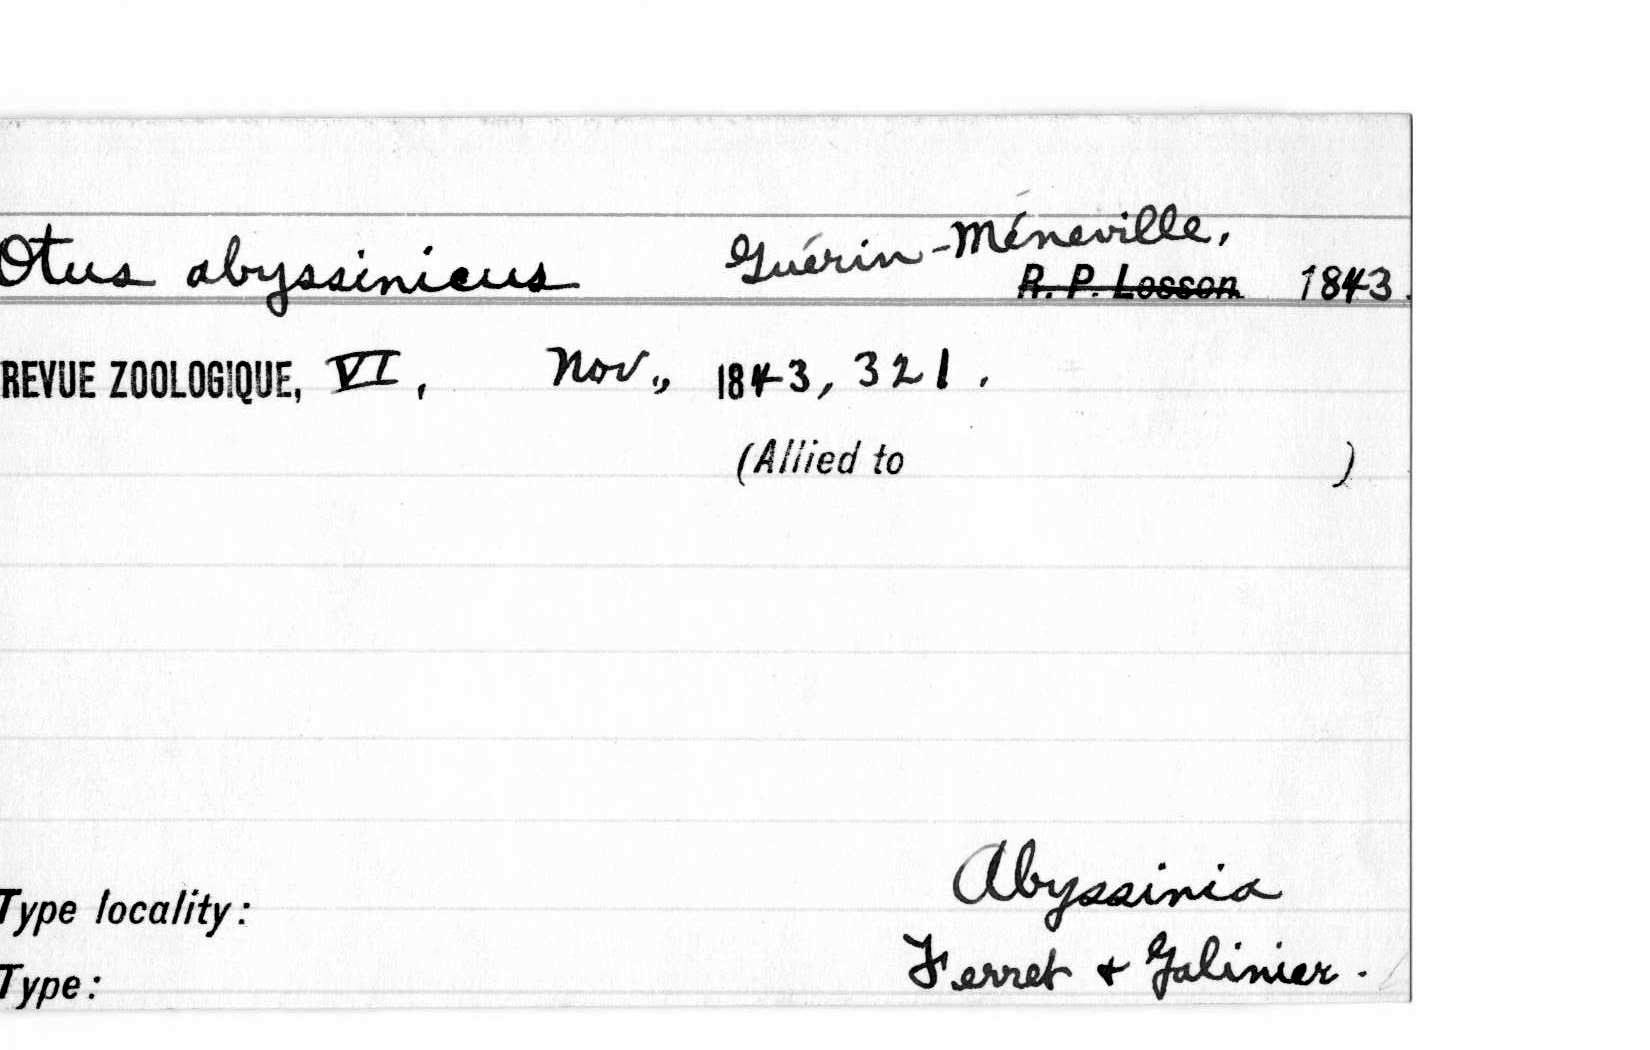 Otus abyssinicus Guérin-Méneville,
R. P. Lesson 1843.
REVUE ZOOLOGIQUE, VI, Nov., 1843, 321.
(Allied to )
Type locality: Abyssinia
Type: Ferret + Galinier.